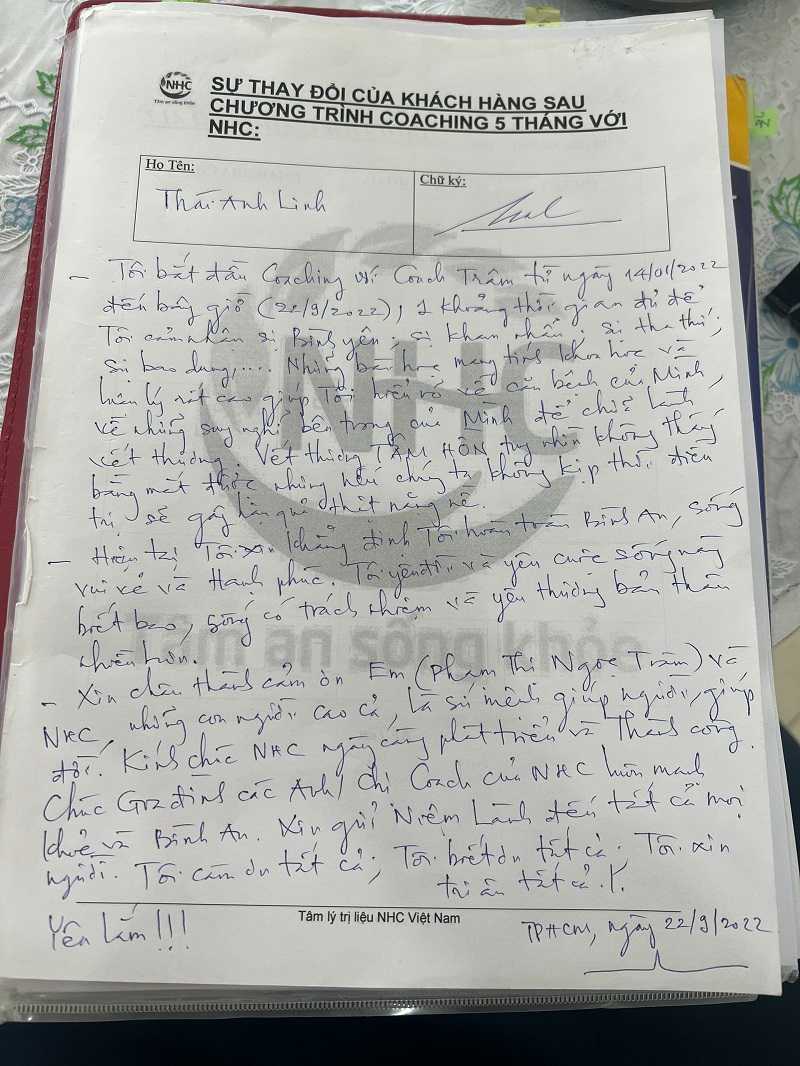 NHC
Tâm an sống khỏe
SỰ THAY ĐỔI CỦA KHÁCH HÀNG SAU
CHƯƠNG TRÌNH COACHING 5 THÁNG VỚI
NHC:
Họ Tên:
Chữ ký:
Thái Anh Linh
- Tôi bắt đầu Coaching với Coach Trâm từ ngày 14/01/2022
đến bây giờ (22/9/2022), 1 khoảng thời gian đủ để
Tôi cảm nhận sự Bình yên, sự kham nhẫn, sự tha thứ,
sự bao dung,.... Những bài học mang tính khoa học và
luân lý rất cao giúp Tôi hiểu rõ về căn bệnh của Mình,
về những suy nghĩ bên trong của Mình để chữa lành
vết thương. Vết thương TÂM HỒN tuy nhìn không thấy
bằng mắt được nhưng nếu chúng ta không kịp thời điều
trị sẽ gây hậu quả thật nặng nề.
- Hiện tại Tôi xin khẳng định Tôi hoàn toàn Bình An, sống
vui vẻ và Hạnh phúc. Tôi yêu đời và yêu cuộc sống này
biết bao, sống có trách nhiệm và yêu thương bản thân
nhiều hơn.
- Xin chân thành cảm ơn Em (Phạm Thị Ngọc Trâm) và
NHC, những con người cao cả, là sứ mệnh giúp người, giúp
đời. Kính chúc NHC ngày càng phát triển và Thành công.
Chúc Gia đình các Anh/Chị Coach của NHC luôn mạnh
khỏe và Bình An. Xin gửi Niệm Lành đến tất cả mọi
người. Tôi cảm ơn tất cả; Tôi biết ơn tất cả; Tôi xin
tri ân tất cả.
Tâm lý trị liệu NHC Việt Nam
Yên Lắm!!!
TPHCM, ngày 22/9/2022
NHC
Tâm an sống khỏe